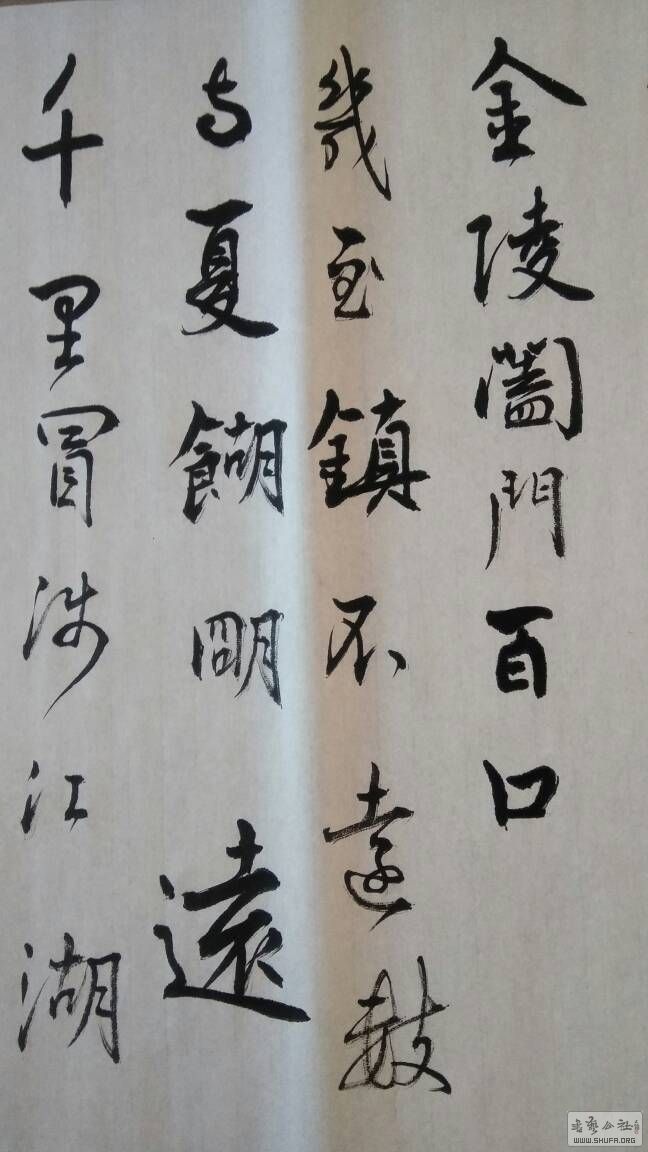 金陵闔門百口
幾至鎮不遠數
夏餬朙遠
千里冒涉江湖
书艺公社
WWW.SHUFA.ORG